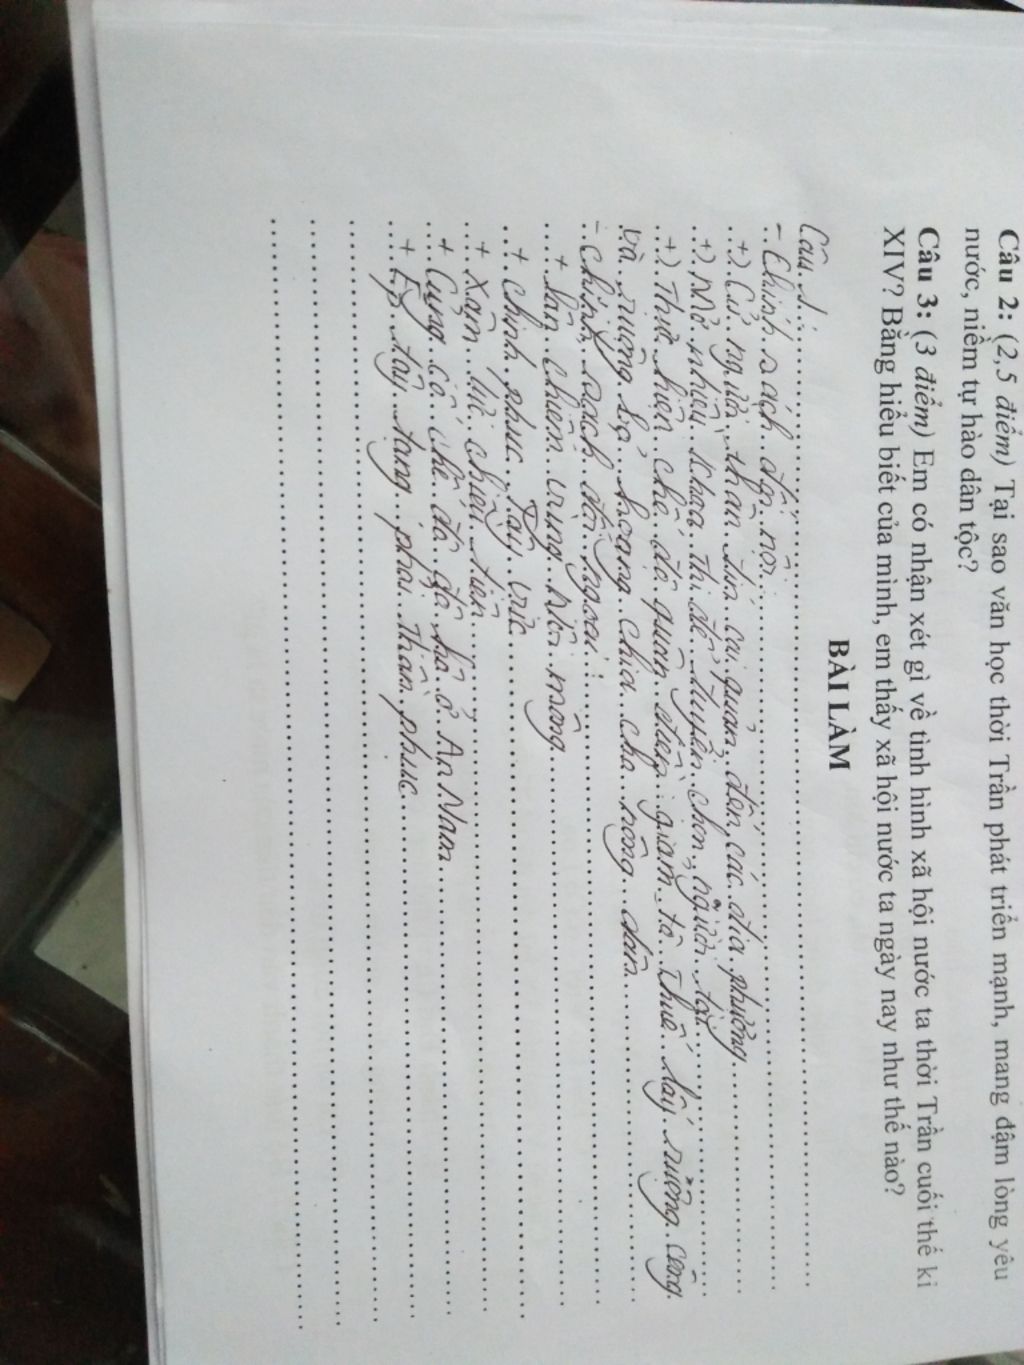 Câu 2: (2,5 điểm) Tại sao văn học thời Trần phát triển mạnh, mang đậm lòng yêu
nước, niềm tự hào dân tộc?
Câu 3: (3 điểm) Em có nhận xét gì về tình hình xã hội nước ta thời Trần cuối thế kỉ
XIV? Bằng hiểu biết của mình, em thấy xã hội nước ta ngày nay như thế nào?
BÀI LÀM
Câu 1:
- Chính sách đối nội:
+) Cử người thân tín cai quản đến các địa phương
+) Mở nhiều khoa thi để tuyển chọn người tài
+) Thực hiện chế độ quân điền giảm tô thuế lấy ruộng công
và ruộng bỏ hoang chia cho nông dân
- Chính sách đối ngoại:
+ Lấn chiếm vùng Nội mông
+ Chinh phục Tây vực
+ Xâm lược Triều tiên
+ Củng cố chế độ đô hộ ở An Nam
+ Ép tây tạng phải thần phục